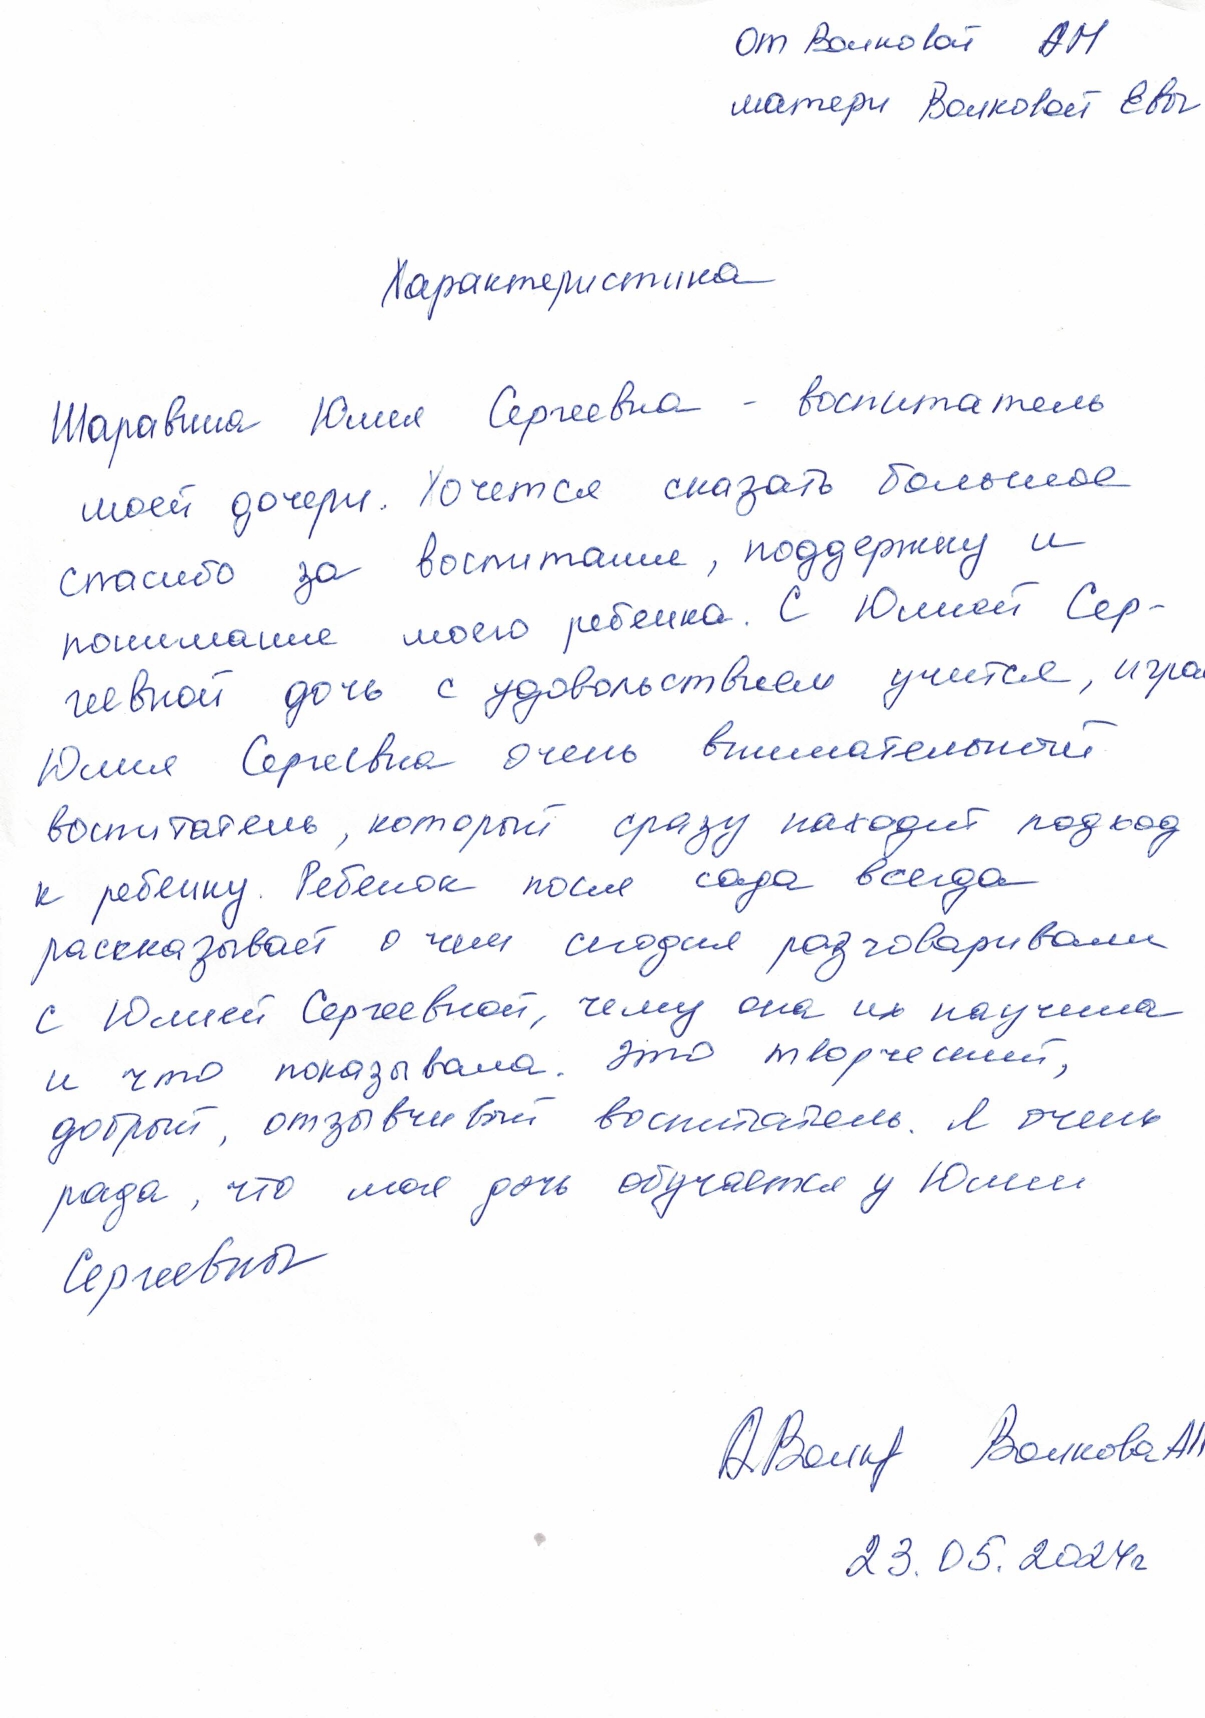 От Волковой АН
матери Волковой Евы
Характеристика
Шаравина Юлия Сергеевна - воспитатель
моей дочери. Хочется сказать большое
спасибо за воспитание, поддержку и
понимание моего ребенка. С Юлией Сер-
геевной дочь с удовольствием учится, игра
Юлия Сергеевна очень внимательный
воспитатель, который сразу находит подход
к ребенку. Ребенок после сада всегда
рассказывает о чем сегодня разговаривали
с Юлией Сергеевной, чему она их научила
и что показывала. Это творческий,
добрый, отзывчивый воспитатель. Я очень
рада, что моя дочь обучается у Юлии
Сергеевны
Волкова АН
23.05.2024г